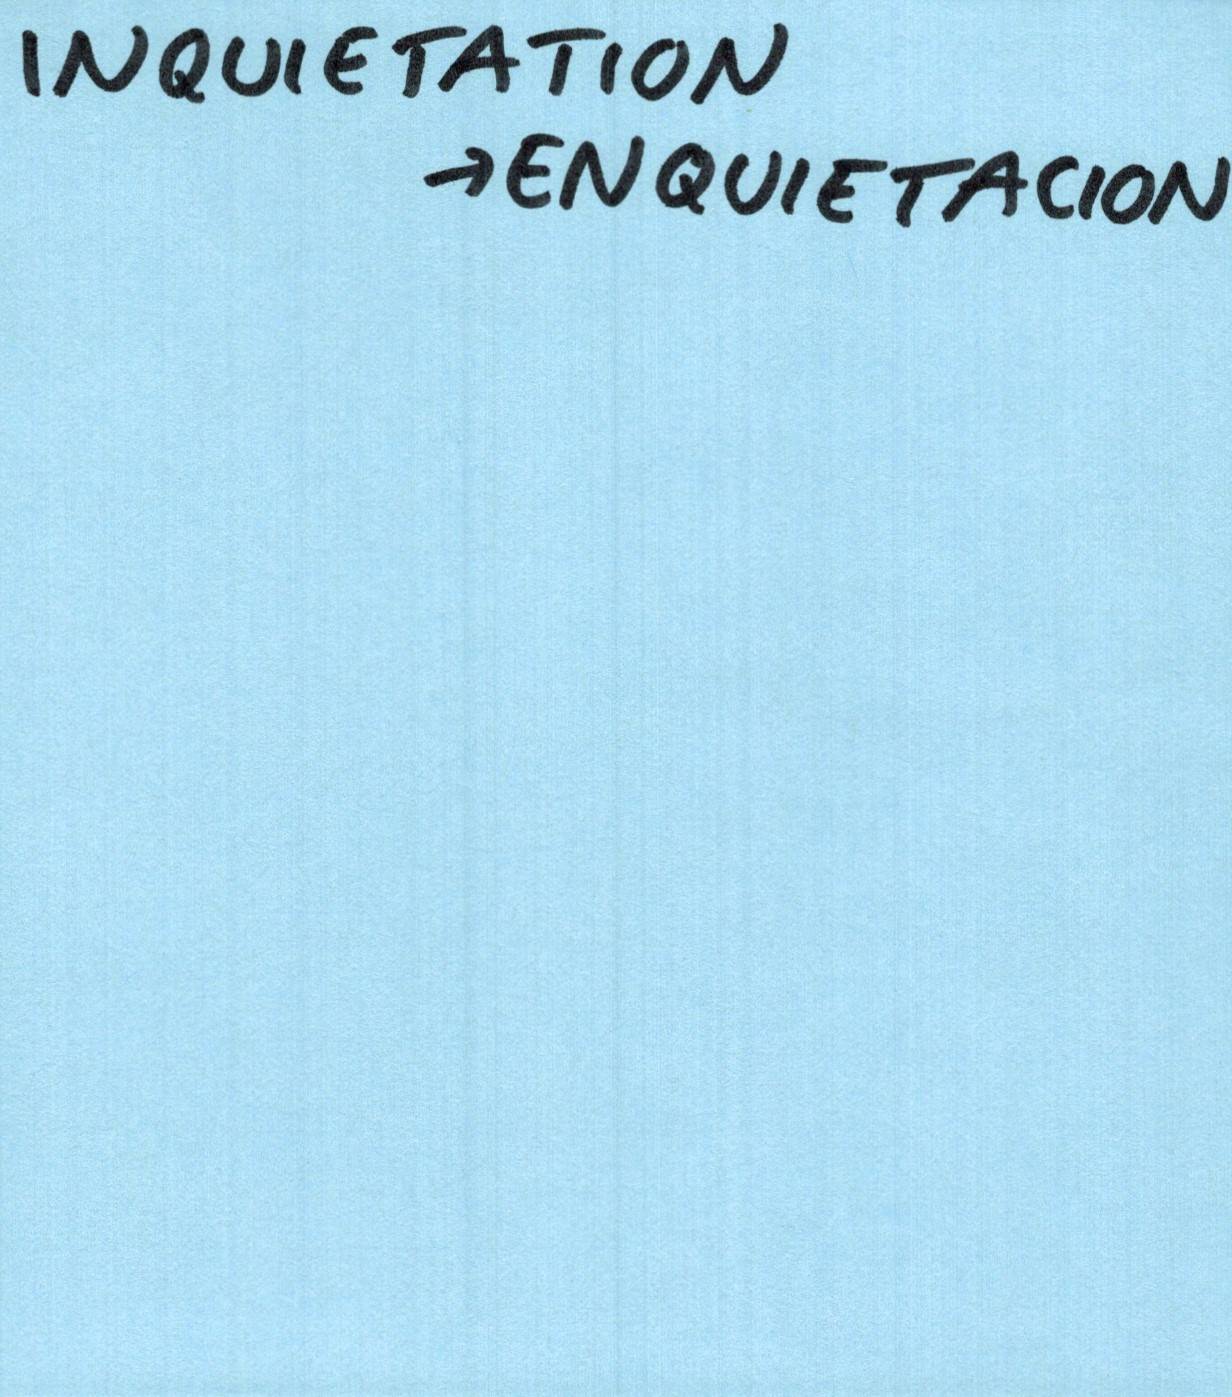 INQUIETATION
→ENQUIETACION